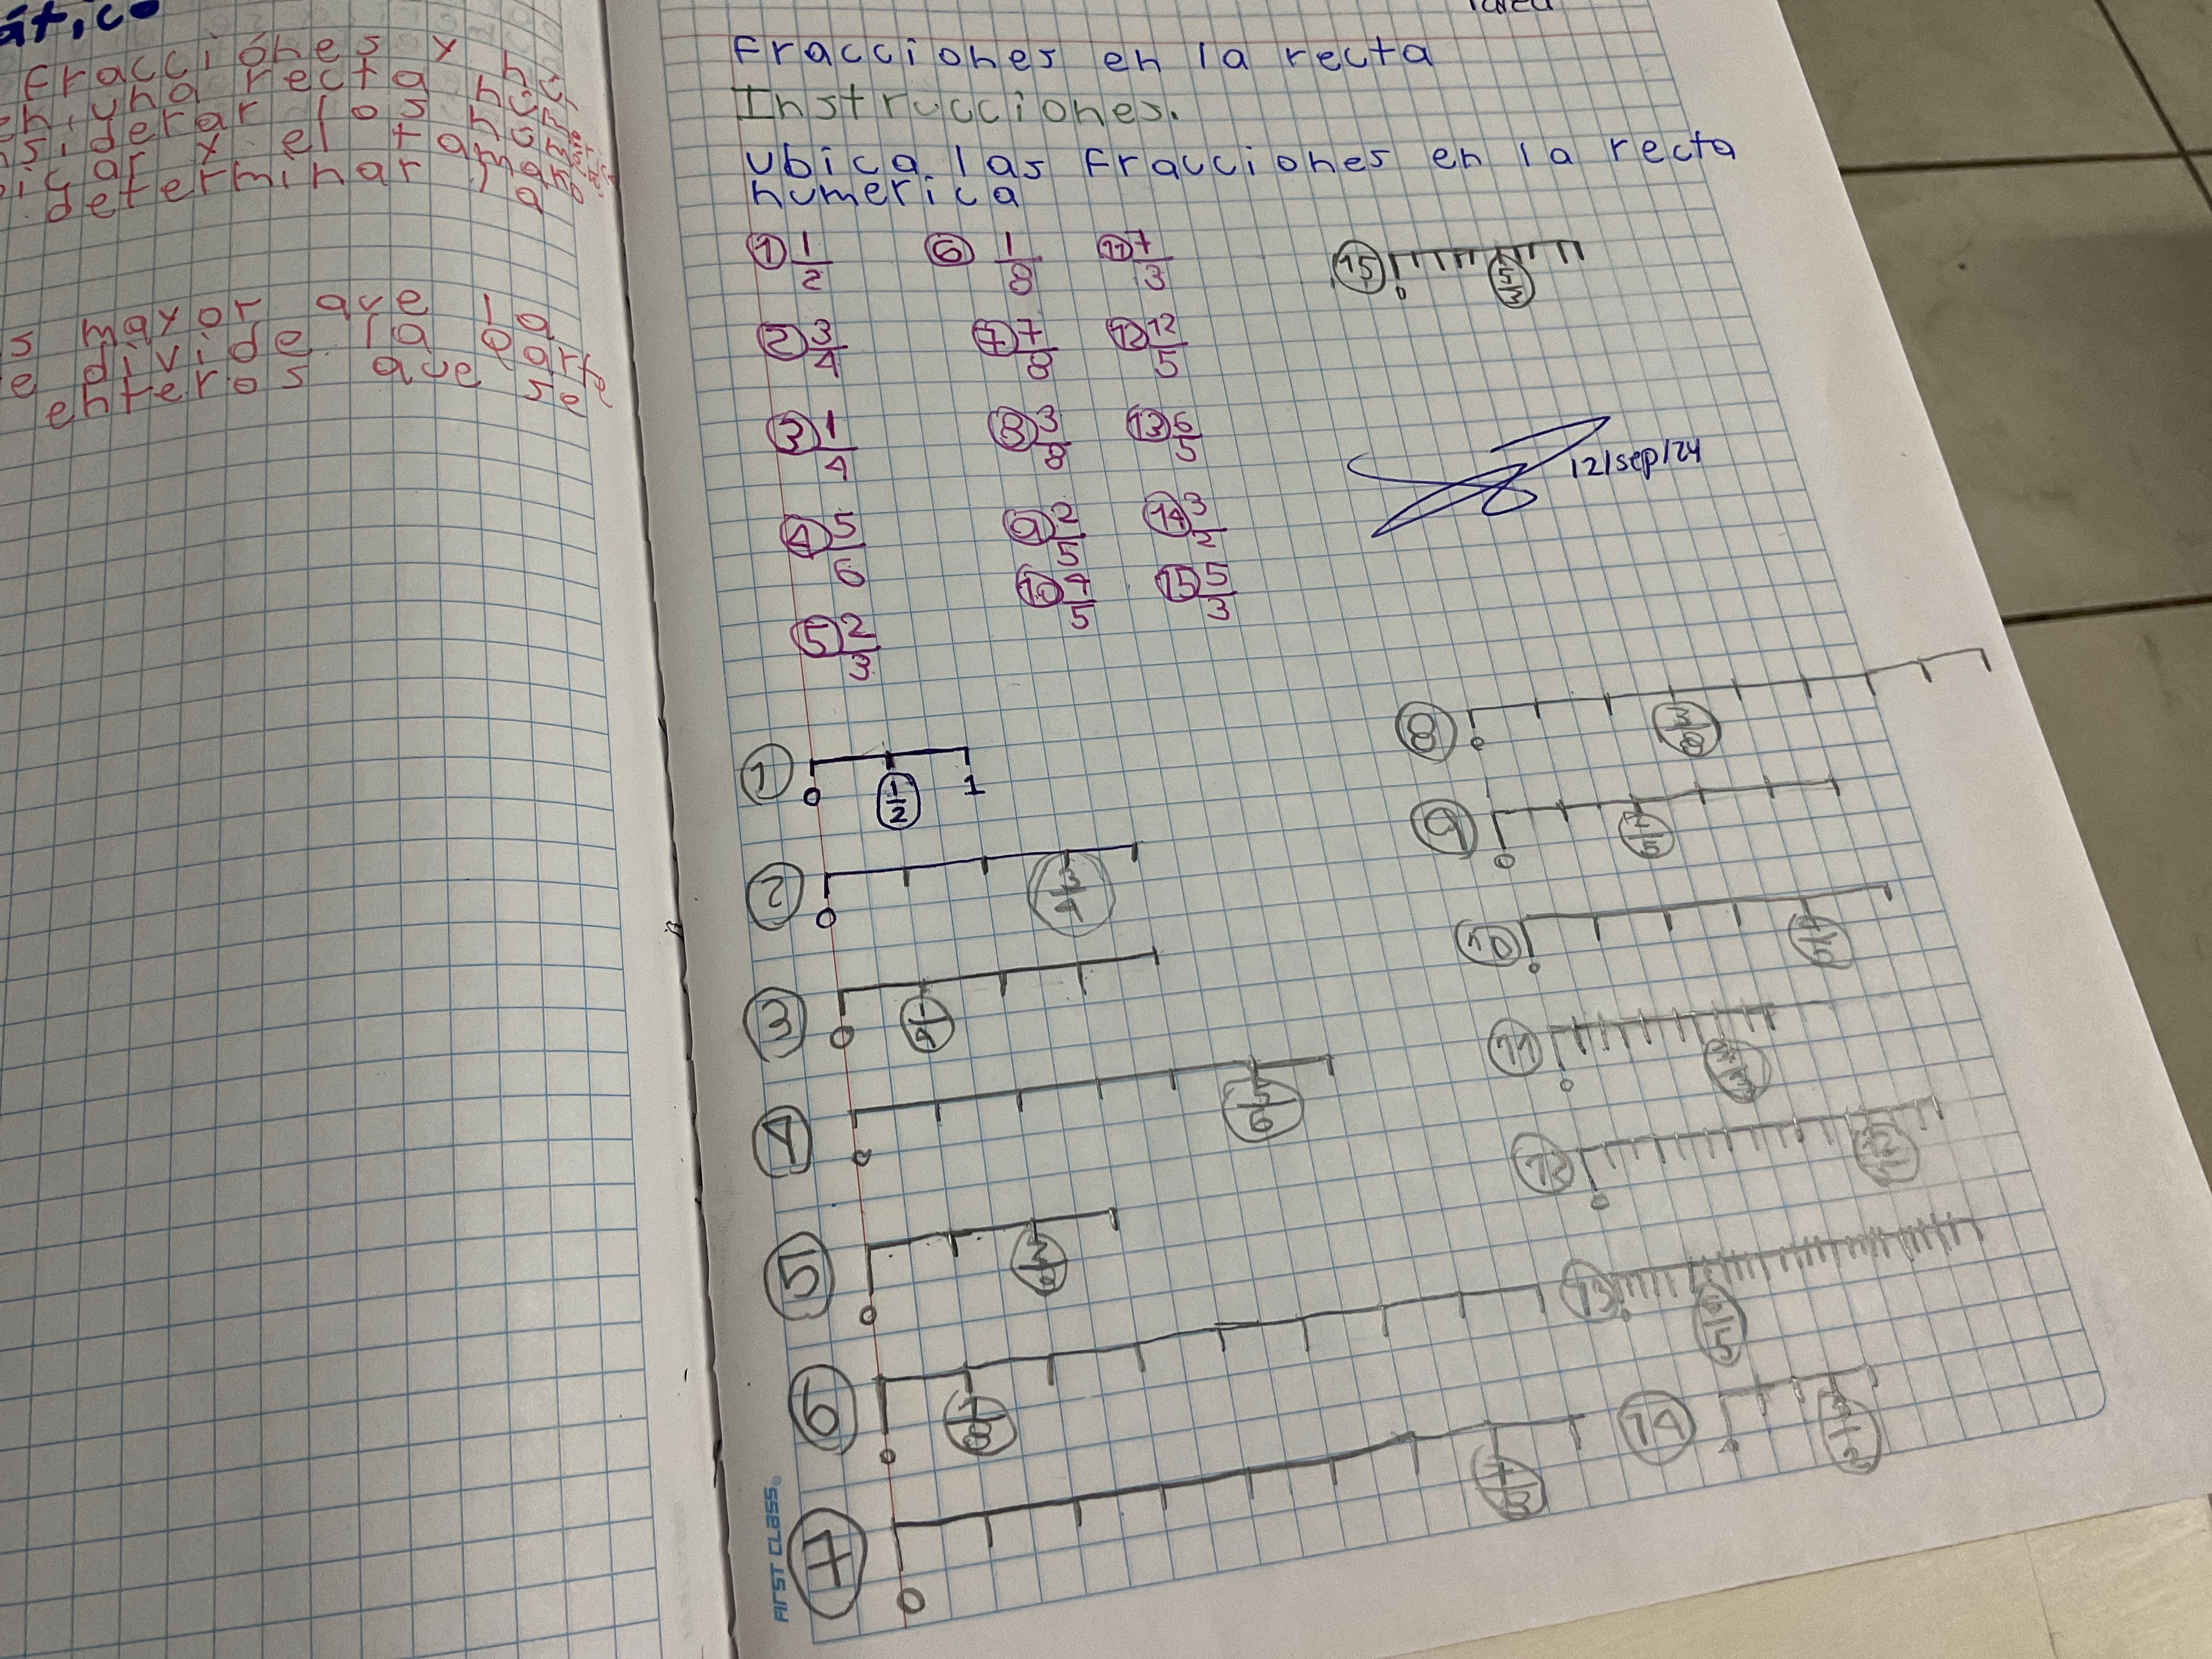 ático
fracciones y
en una recta
derar los
ar y el tamaño
determinar la
s mayor que la
e divide la parte
enteros que se
Fracciones en la recta
Instrucciones.
ubica las fracciones en la recta
numerica
① 1/2 ⑥ 1/8 ⑪ 7/3
② 3/4 ⑦ 7/8 ⑫ 12/5
③ 1/4 ⑧ 3/8 ⑬ 6/5
④ 5/6 ⑨ 2/5 ⑭ 3/2
⑩ 4/5 ⑮ 5/3
⑤ 2/3
⑮ 0 5/3
12/sep/24
① 0 1/2 1
② 0 3/4
③ 0 1/4
④ 0 5/6
⑤ 0 2/3
⑥ 0 1/8
⑦ 0
⑧ 0 3/8
⑨ 0 2/5
⑩ 0 4/5
⑪ 0 7/3
⑫ 0 12/5
⑬ 0 6/5
⑭ 0 3/2
FIRST CLASS